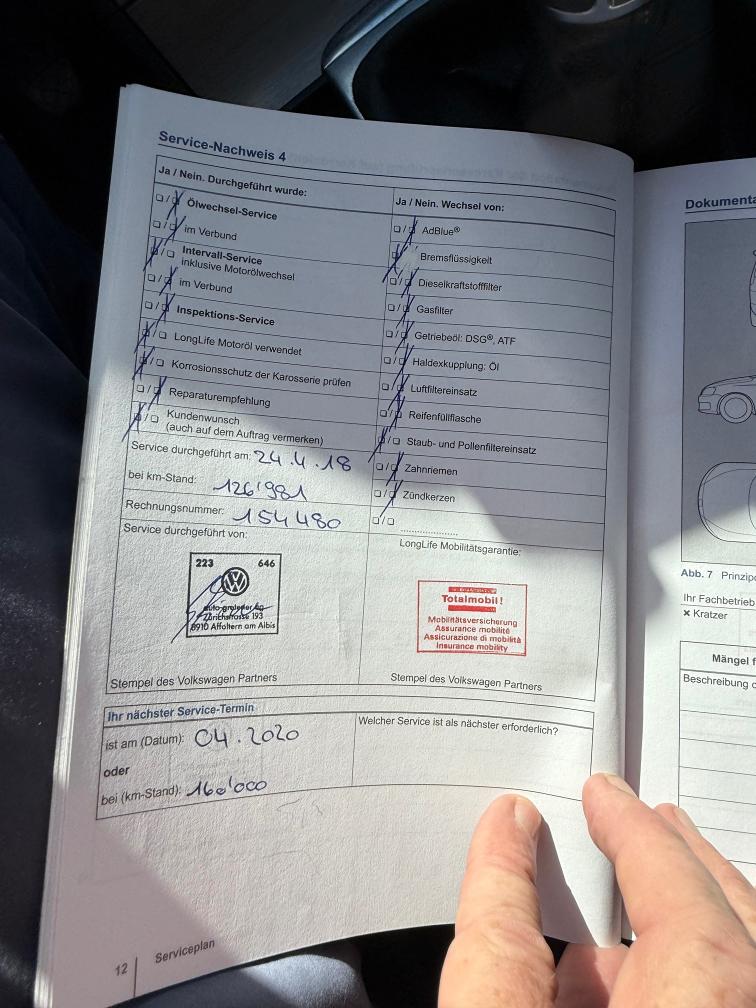 Service-Nachweis 4
Ja / Nein. Durchgeführt wurde:
❏/❏ Ölwechsel-Service
❏/❏ im Verbund
❏/❏ Intervall-Service
inklusive Motorölwechsel
❏/❏ im Verbund
❏/❏ Inspektions-Service
❏/❏ LongLife Motoröl verwendet
❏/❏ Korrosionsschutz der Karosserie prüfen
❏/❏ Reparaturempfehlung
❏/❏ Kundenwunsch
(auch auf dem Auftrag vermerken)
Service durchgeführt am: 24.4.18
bei km-Stand: 126'981
Rechnungsnummer: 154480
Ja / Nein. Wechsel von:
❏/❏ AdBlue®
Bremsflüssigkeit
❏/❏ Dieselkraftstofffilter
❏/❏ Gasfilter
❏/❏ Getriebeöl: DSG®, ATF
❏/❏ Haldexkupplung: Öl
❏/❏ Luftfiltereinsatz
❏/❏ Reifenfüllflasche
❏/❏ Staub- und Pollenfiltereinsatz
❏/❏ Zahnriemen
❏/❏ Zündkerzen
❏/❏ ....................
Service durchgeführt von:
223 646
Zürichstrasse 193
8910 Affoltern am Albis
Stempel des Volkswagen Partners
LongLife Mobilitätsgarantie:
Totalmobil!
Mobilitätsversicherung
Assurance mobilité
Assicurazione di mobilità
Insurance mobility
Stempel des Volkswagen Partners
Ihr nächster Service-Termin
ist am (Datum): 04.2020
oder
bei (km-Stand): 160'000
Welcher Service ist als nächster erforderlich?
12 Serviceplan
Abb. 7
Ihr Fachbetrieb
× Kratzer
Mängel
Beschreibung